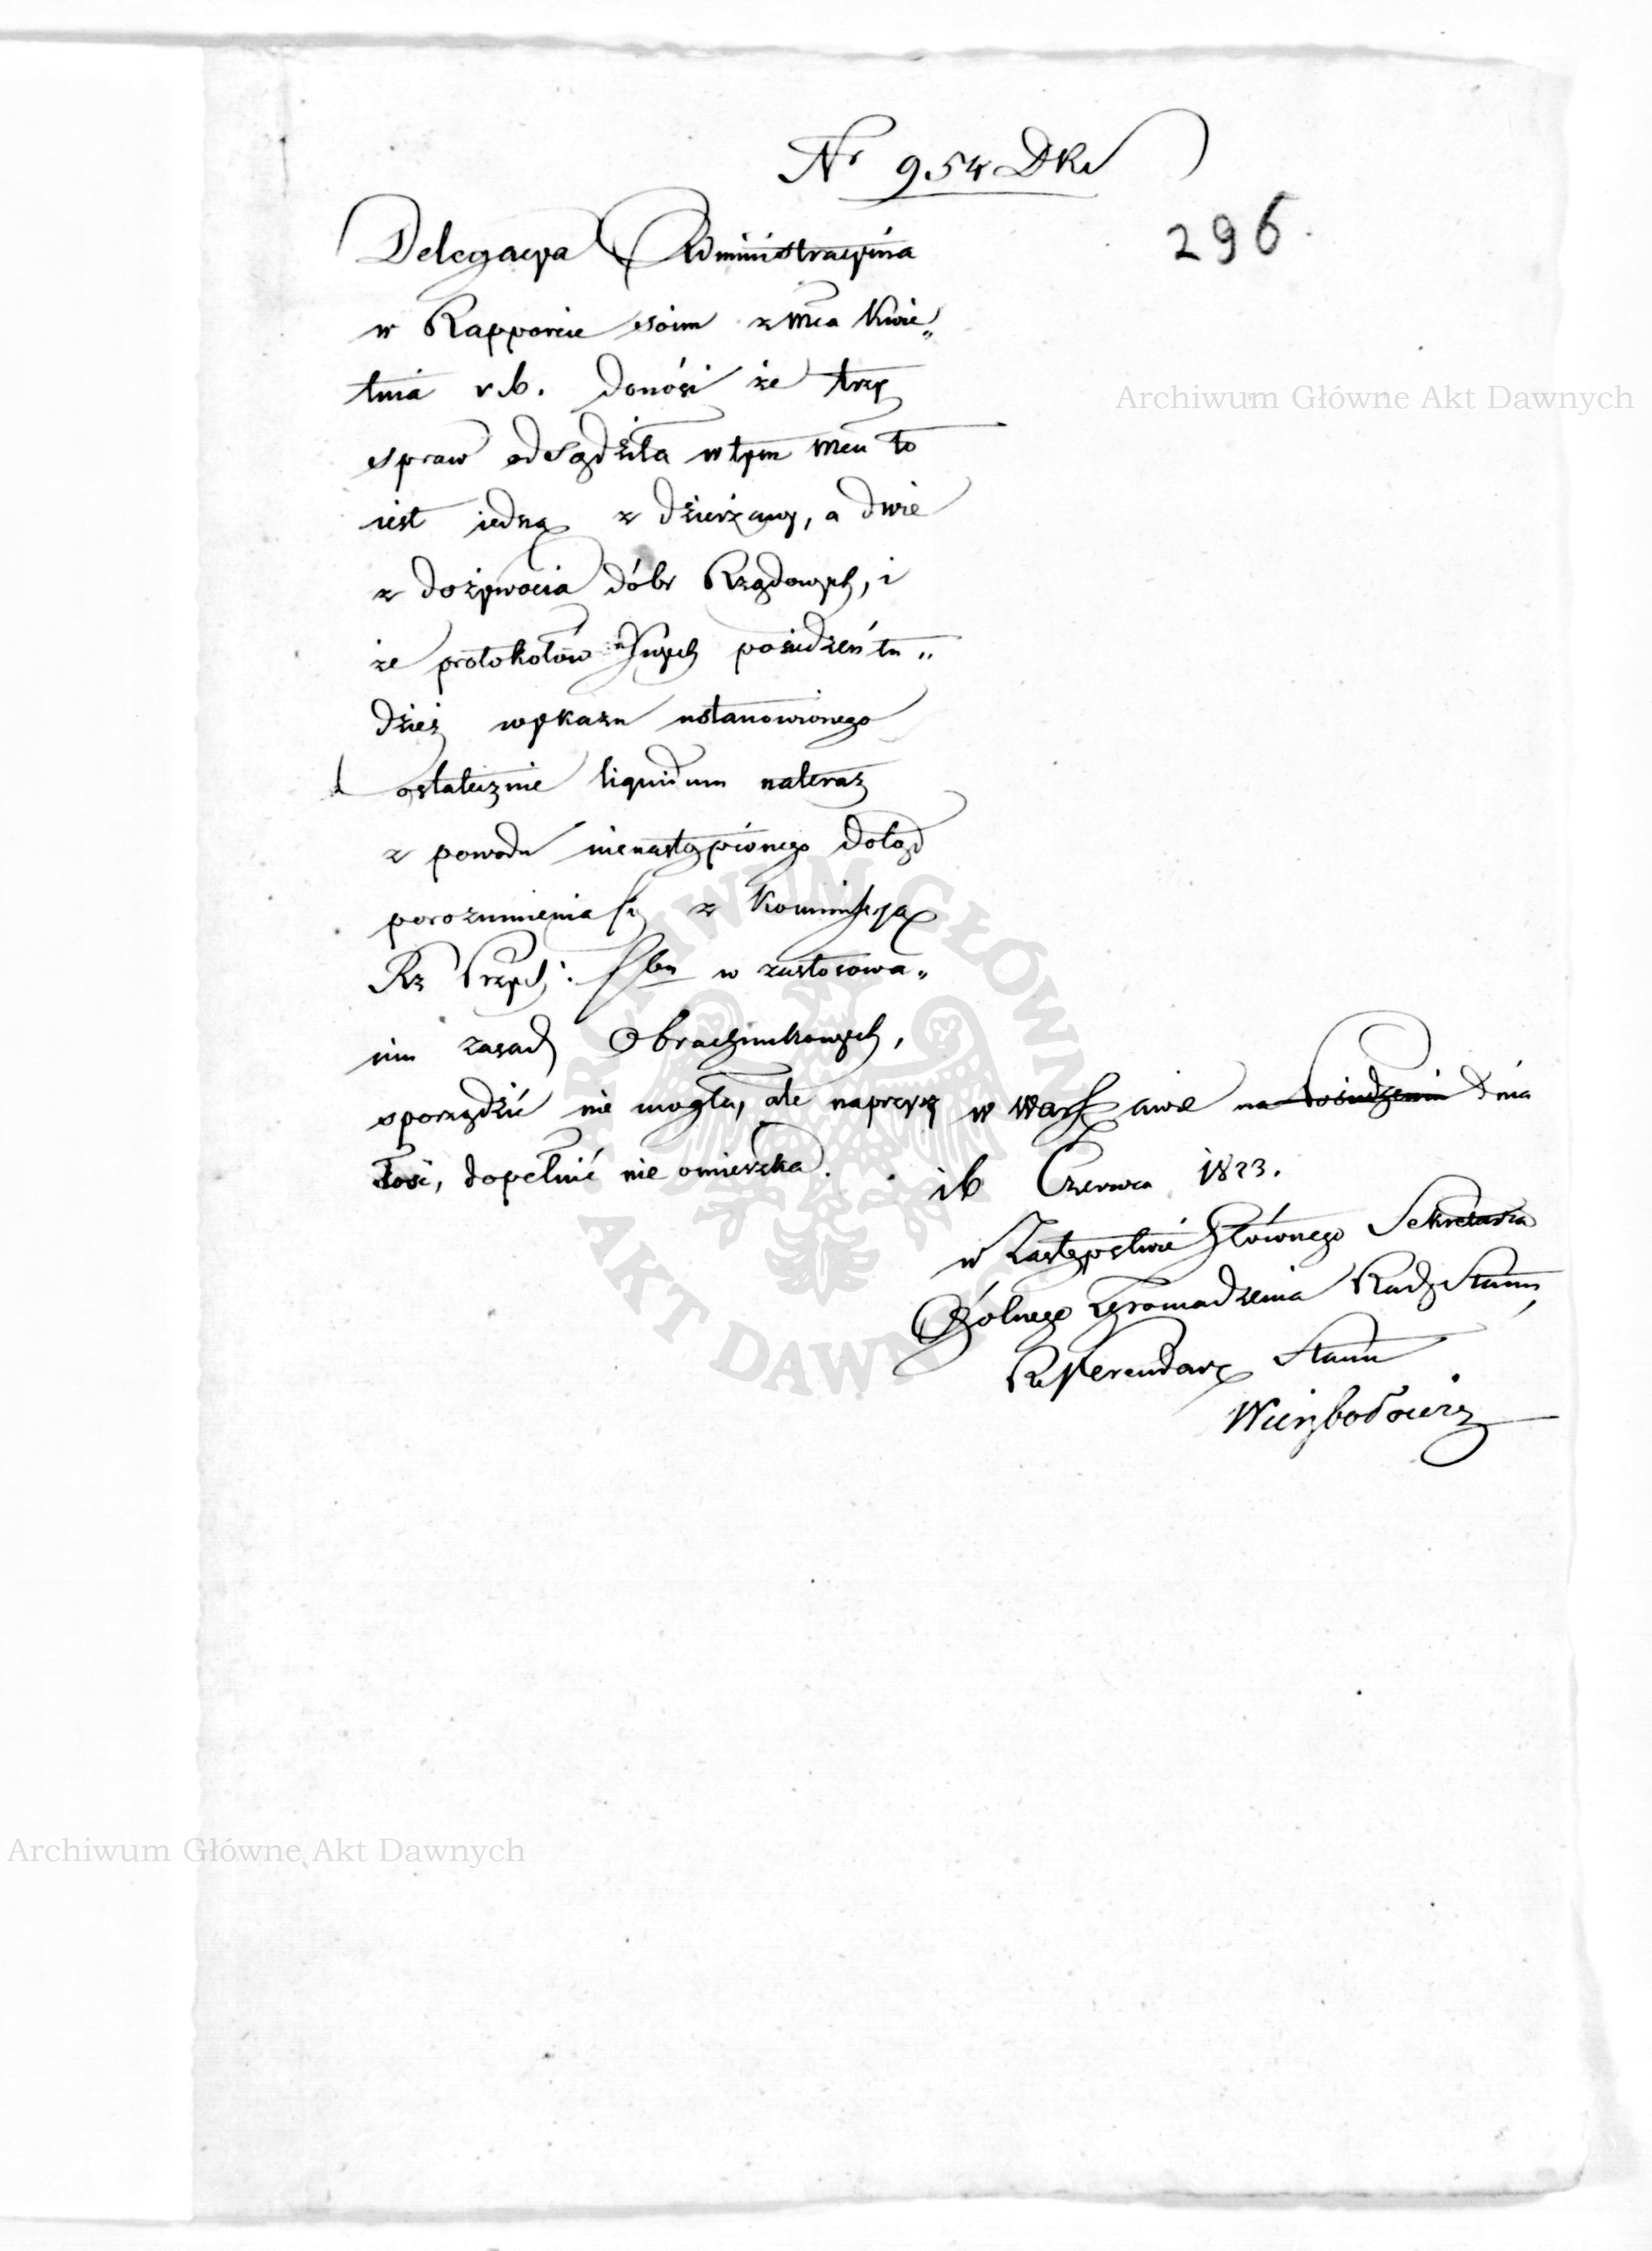 Nr 954 DKr
296.
Delegacya Administracyina
w Rapporcie soim z mca Kwie„
tnia r. b. donósi że trzy
spraw odsądziła w tym mcu to
iest iedną z dzierżawy, a dwie
z dożywocia dóbr Rządowych, i
że protokołów swych posiedzeń tu„
dzież wykazu ustanowionego
ostatecznie liquidum nateraz
z powodu nienastąpionego dotąd
porozumienia się z Kommissyą
Rz Przych: Sbu w zastosowa„
niu zasad Obrachunkowych,
sporządzić nie mogła, ale naprzysz
łość, dopełnić nie omieszka.
w Warszawie na Posiedzeniu dnia
16 Czerwca 1823.
w Zastępstwie Głównego Sekretarza
Ogólnego Zgromadzenia Rady Stanu,
Referendarz Stanu
Wierzbołowicz
Archiwum Główne Akt Dawnych
ARCHIWUM GŁÓWNE AKT DAWNYCH
Archiwum Główne Akt Dawnych